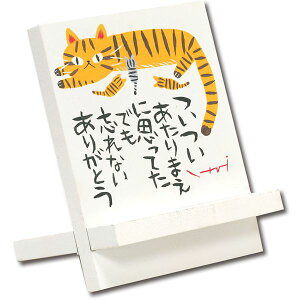 ついつい
あたりまえ
に思ってた
でも
忘れない
ありがとう